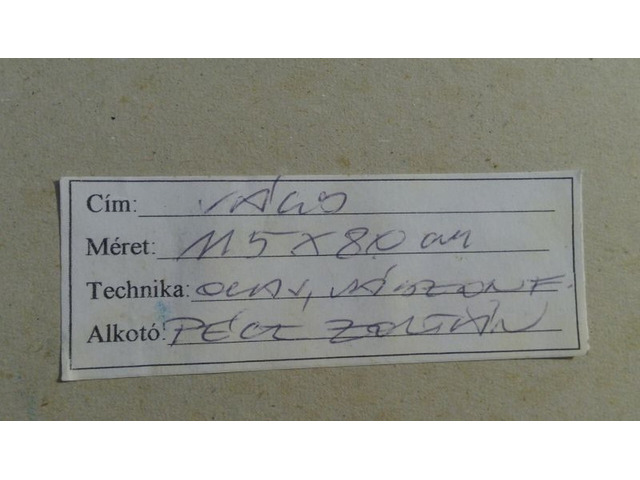 Cím: VÁGY
Méret: 115 X 80 cm
Technika: OLAJ, VÁSZON
Alkotó: PÉCZ ZOLTÁN